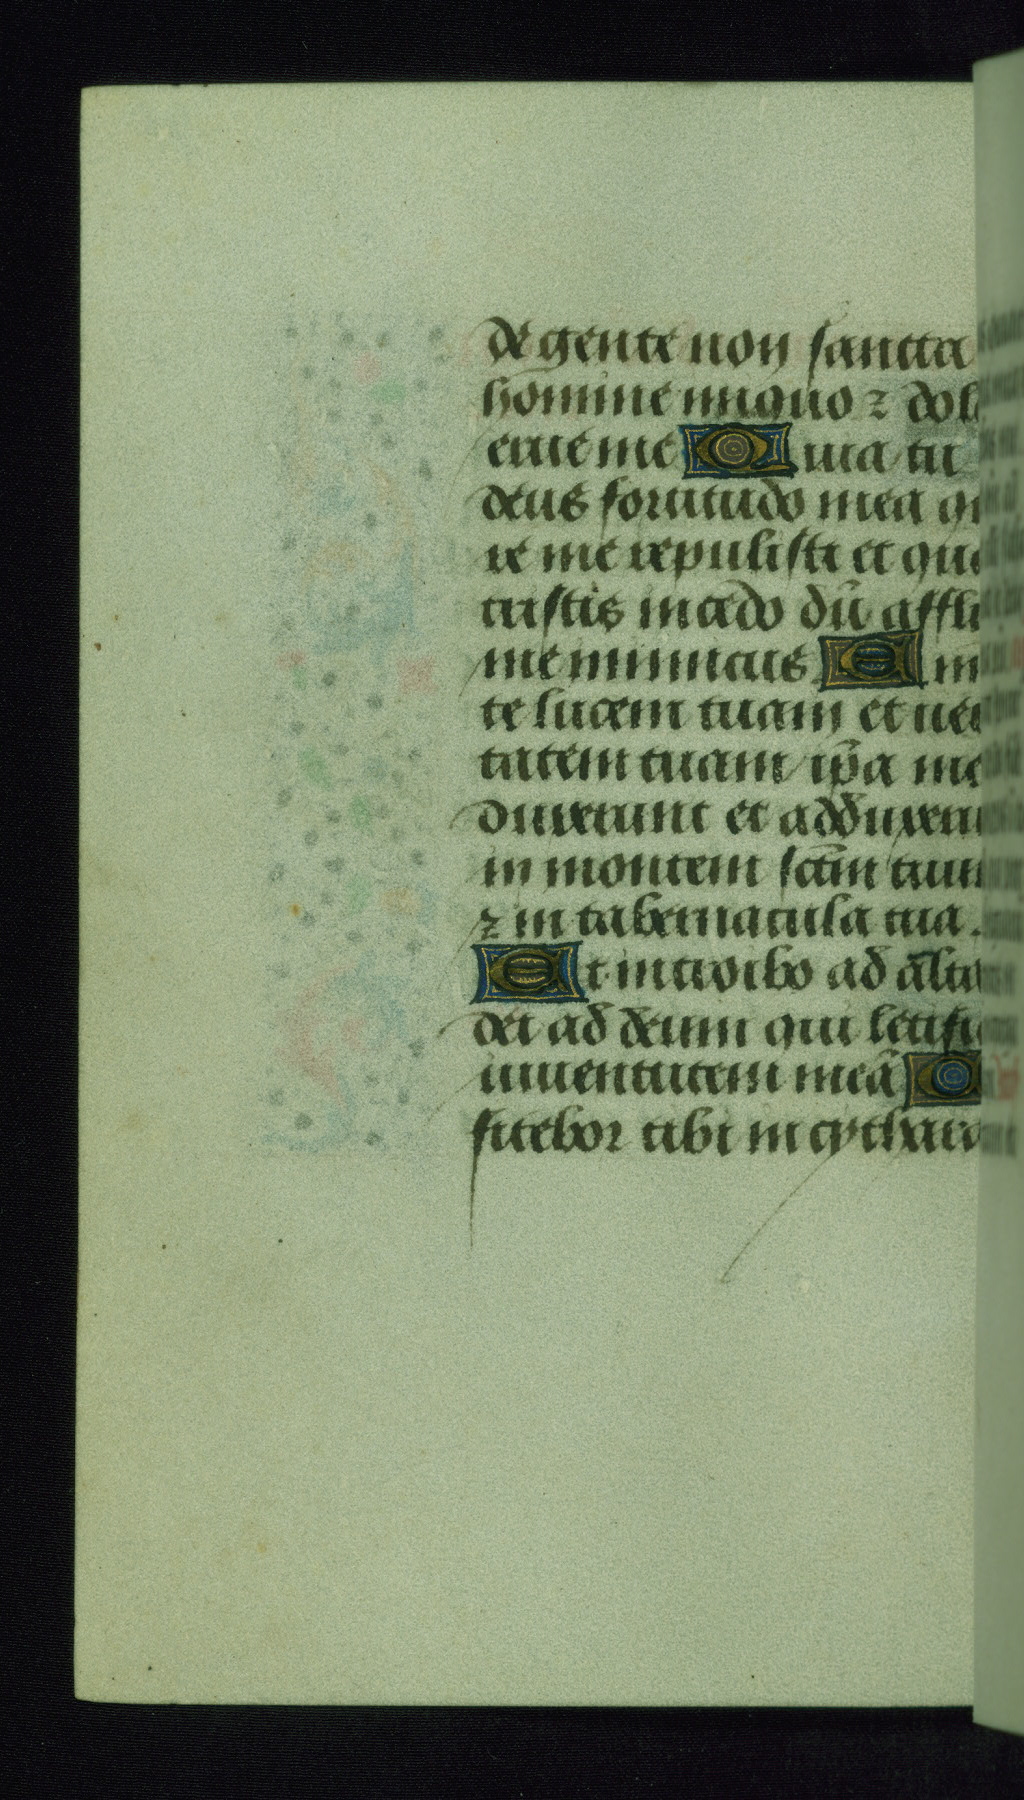 de gente non sancta
homine iniquo ⁊ dol
erue me Quia tu
deus fortitudo mea q
re me repulisti et qua
tristis incedo dū affli
me inimicus Emi
te lucem tuam et ueri
tatem tuam ip̄a me
duxerunt et adduxeru
in montem sc̄m tuum
⁊ in tabernacula tua.
Et introibo ad alta
dei ad deum qui letifi
iuuentutem meā Co
fitebor tibi in cythara